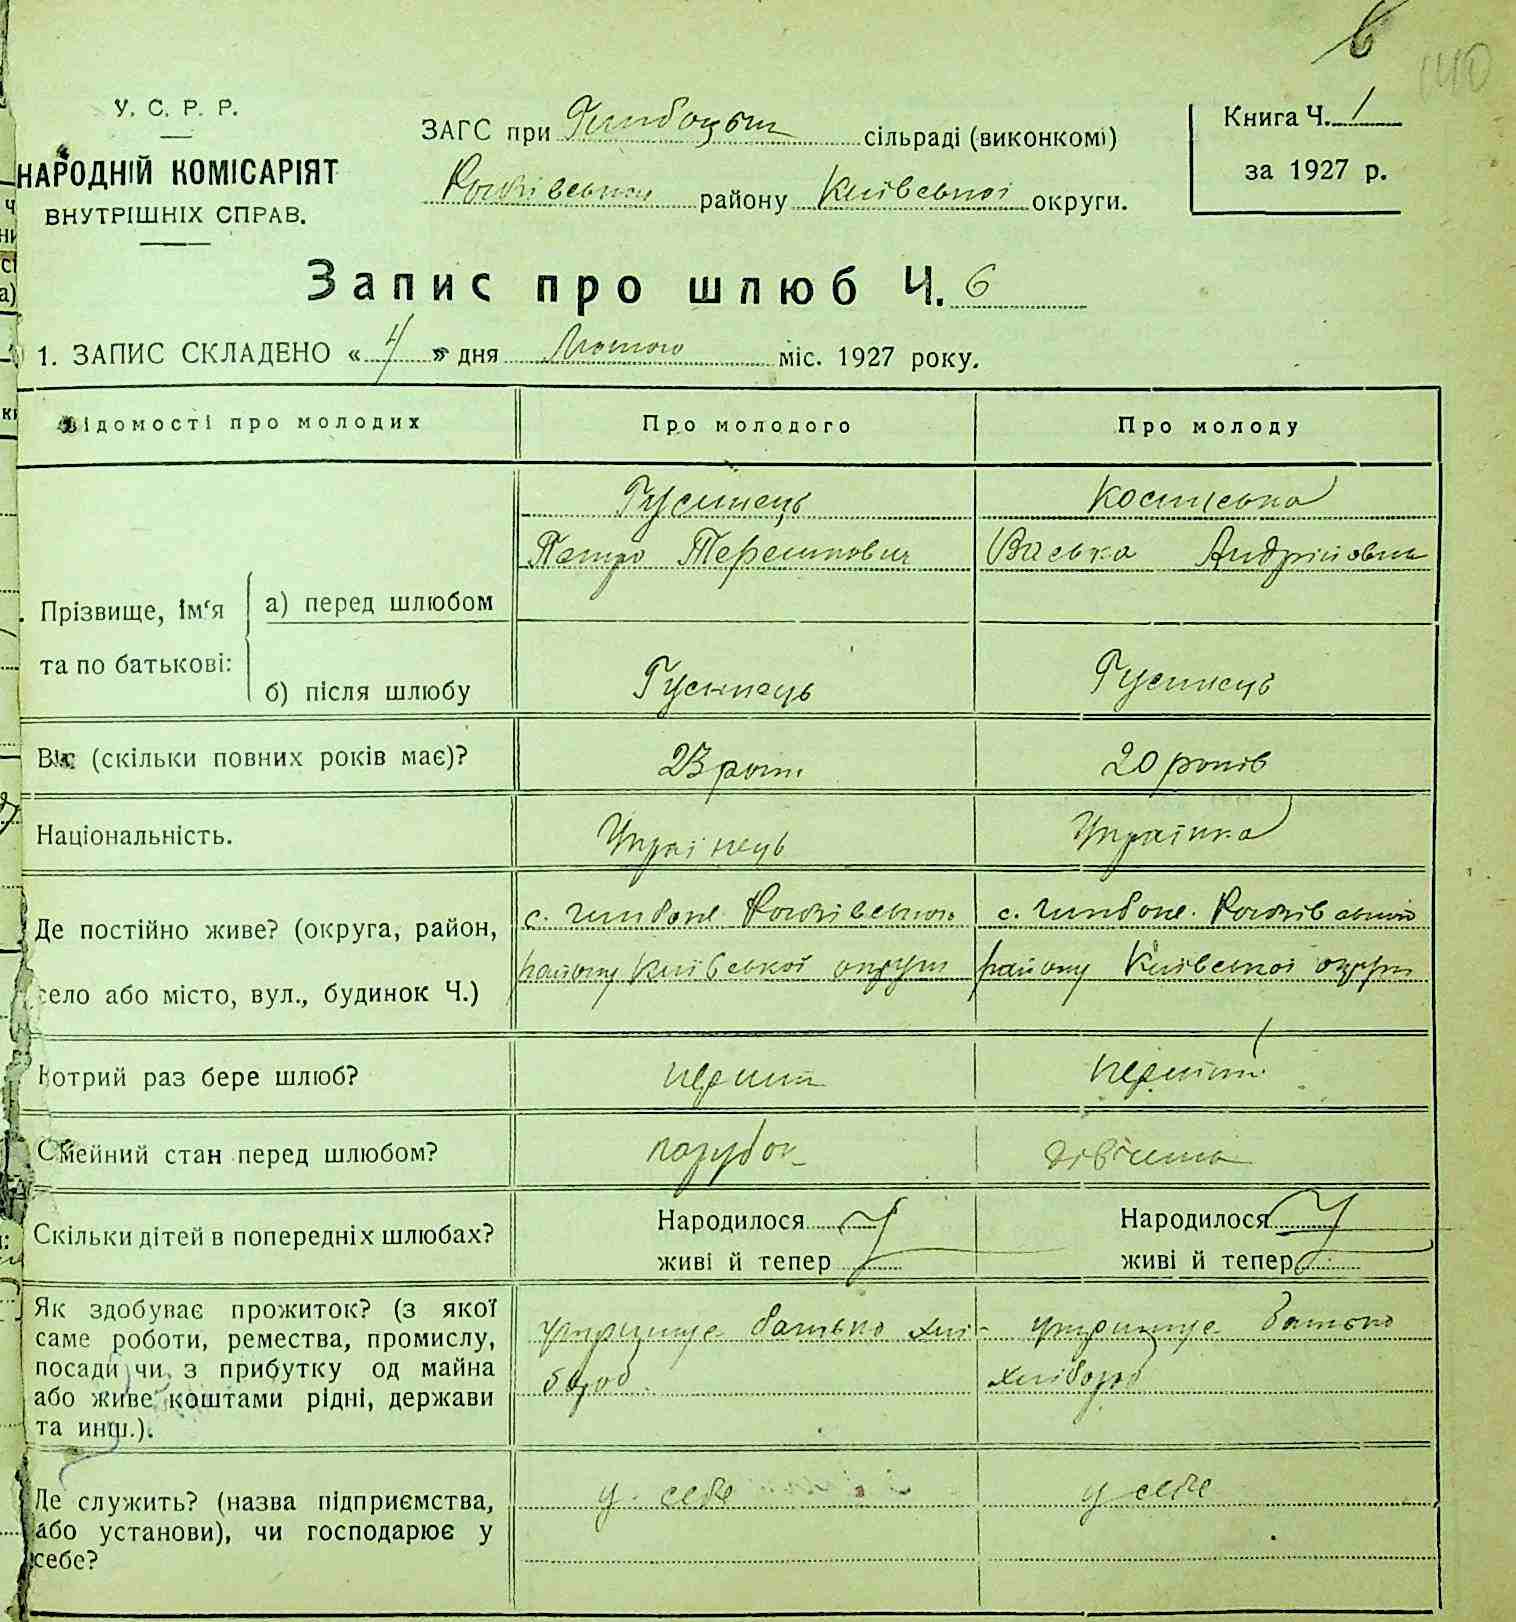 6
140
У. С. Р. Р.
НАРОДНІЙ КОМІСАРІЯТ
ВНУТРІШНІХ СПРАВ.
ЗАГС при сільраді (виконкомі)
району Київської округи.
Книга Ч. 1
за 1927 р.
Запис про шлюб Ч. 6
1. ЗАПИС СКЛАДЕНО « 4 » дня Лютого міс. 1927 року.
Відомості про молодих
Про молодого
Про молоду
Прізвище, ім'я
та по батькові:
а) перед шлюбом
Гусинець
Петро
Андріївна
б) після шлюбу
Гусинець
Гусинець
Вік (скільки повних років має)?
23 роки
20 років
Національність.
Українець
Українка
Де постійно живе? (округа, район,
село або місто, вул., будинок Ч.)
с.
району Київської округи
с.
району Київської округи
Котрий раз бере шлюб?
перший
перший
Сімейний стан перед шлюбом?
парубок
дівчина
Скільки дітей в попередніх шлюбах?
Народилося
живі й тепер
Народилося
живі й тепер
Як здобуває прожиток? (з якої
саме роботи, ремества, промислу,
посади чи з прибутку од майна
або живе коштами рідні, держави
та инш.).
утримує батько хлі-
бороб.
утримує батько
хлібороб
Де служить? (назва підприємства,
або установи), чи господарює у
себе?
у себе
у себе